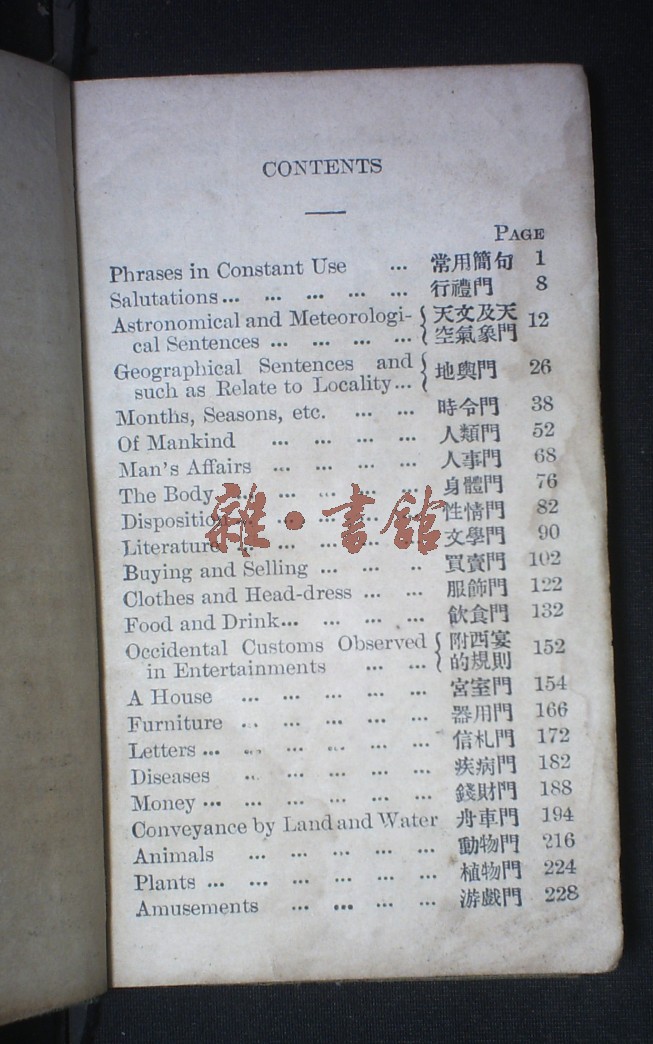 CONTENTS
PAGE
Phrases in Constant Use ... 常用簡句 1
Salutations ... ... ... ... ... 行禮門 8
Astronomical and Meteorologi- { 天文及天
cal Sentences ... ... ... ... 空氣象門 12
Geographical Sentences and { 地輿門 26
such as Relate to Locality ...
Months, Seasons, etc. ... ... 時令門 38
Of Mankind ... ... ... ... 人類門 52
Man's Affairs ... ... ... ... 人事門 68
The Body ... ... ... ... ... 身體門 76
Disposition ... ... ... ... 性情門 82
Literature ... ... ... ... ... 文學門 90
Buying and Selling ... ... ... 買賣門 102
Clothes and Head-dress ... ... 服飾門 122
Food and Drink ... ... ... ... 飲食門 132
Occidental Customs Observed { 附西宴
in Entertainments ... ... 的規則 152
A House ... ... ... ... ... 宮室門 154
Furniture ... ... ... ... ... 器用門 166
Letters ... ... ... ... ... ... 信札門 172
Diseases ... ... ... ... ... 疾病門 182
Money ... ... ... ... ... ... 錢財門 188
Conveyance by Land and Water 舟車門 194
Animals ... ... ... ... ... 動物門 216
Plants ... ... ... ... ... ... 植物門 224
Amusements ... ... ... ... 游戲門 228
雜·書館